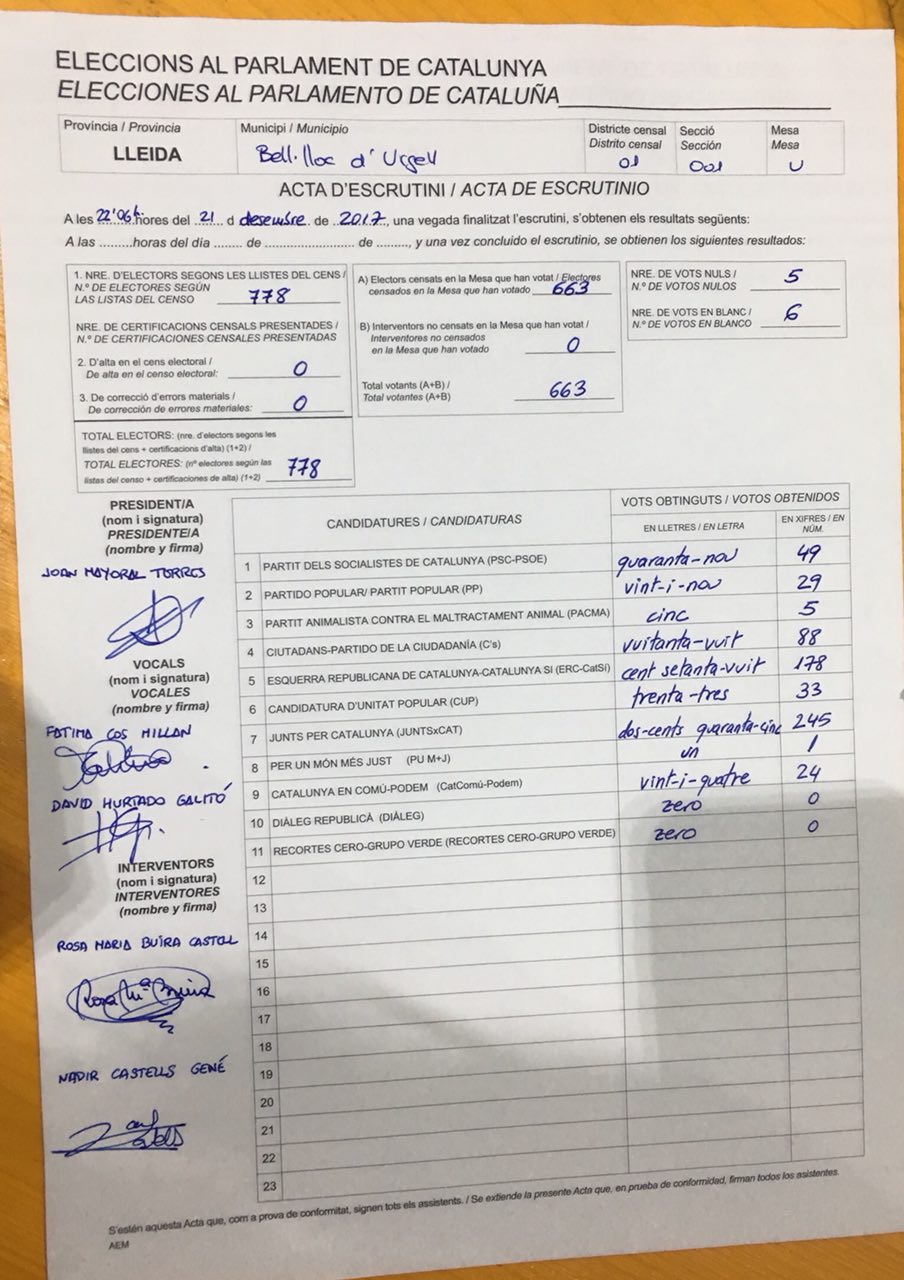 ELECCIONS AL PARLAMENT DE CATALUNYA
ELECCIONES AL PARLAMENTO DE CATALUÑA
Província / Provincia
LLEIDA
Municipi / Municipio
Bell-lloc d'Urgell
Districte censal
Distrito censal
01
Secció
Sección
001
Mesa
Mesa
U
ACTA D'ESCRUTINI / ACTA DE ESCRUTINIO
A les 22'06h. hores del 21 d desembre de 2017, una vegada finalitzat l'escrutini, s'obtenen els resultats següents:
A las .........horas del día ....... de ........................ de ........., y una vez concluido el escrutinio, se obtienen los siguientes resultados:
1. NRE. D'ELECTORS SEGONS LES LLISTES DEL CENS /
N.º DE ELECTORES SEGÚN
LAS LISTAS DEL CENSO 778
NRE. DE CERTIFICACIONS CENSALS PRESENTADES /
N.º DE CERTIFICACIONES CENSALES PRESENTADAS
2. D'alta en el cens electoral /
De alta en el censo electoral: 0
3. De correcció d'errors materials /
De corrección de errores materiales: 0
TOTAL ELECTORS: (nre. d'electors segons les
llistes del cens + certificacions d'alta) (1+2) /
TOTAL ELECTORES: (nº electores según las
listas del censo + certificaciones de alta) (1+2) 778
A) Electors censats en la Mesa que han votat / Electores
censados en la Mesa que han votado 663
B) Interventors no censats en la Mesa que han votat /
Interventores no censados
en la Mesa que han votado 0
Total votants (A+B) /
Total votantes (A+B) 663
NRE. DE VOTS NULS /
N.º DE VOTOS NULOS 5
NRE. DE VOTS EN BLANC /
N.º DE VOTOS EN BLANCO 6
PRESIDENT/A
(nom i signatura)
PRESIDENTE/A
(nombre y firma)
JOAN MAYORAL TORRES
VOCALS
(nom i signatura)
VOCALES
(nombre y firma)
FATIMA COS MILLAN
DAVID HURTADO GALITÓ
INTERVENTORS
(nom i signatura)
INTERVENTORES
(nombre y firma)
ROSA MARIA BUIRA CASTELL
Rosa Mª Buira
NADIR CASTELLS GENÉ
CANDIDATURES / CANDIDATURAS
VOTS OBTINGUTS / VOTOS OBTENIDOS
EN LLETRES / EN LETRA
EN XIFRES / EN
NÚM.
1 PARTIT DELS SOCIALISTES DE CATALUNYA (PSC-PSOE) quaranta-nou 49
2 PARTIDO POPULAR/ PARTIT POPULAR (PP) vint-i-nou 29
3 PARTIT ANIMALISTA CONTRA EL MALTRACTAMENT ANIMAL (PACMA) cinc 5
4 CIUTADANS-PARTIDO DE LA CIUDADANÍA (C's) vuitanta-vuit 88
5 ESQUERRA REPUBLICANA DE CATALUNYA-CATALUNYA SI (ERC-CatSí) cent setanta-vuit 178
6 CANDIDATURA D'UNITAT POPULAR (CUP) trenta-tres 33
7 JUNTS PER CATALUNYA (JUNTSxCAT) dos-cents quaranta-cinc 245
8 PER UN MÓN MÉS JUST (PU M+J) un 1
9 CATALUNYA EN COMÚ-PODEM (CatComú-Podem) vint-i-quatre 24
10 DIÀLEG REPUBLICÀ (DIÀLEG) zero 0
11 RECORTES CERO-GRUPO VERDE (RECORTES CERO-GRUPO VERDE) zero 0
12
13
14
15
16
17
18
19
20
21
22
23
S'estén aquesta Acta que, com a prova de conformitat, signen tots els assistents. / Se extiende la presente Acta que, en prueba de conformidad, firman todos los asistentes.
AEM